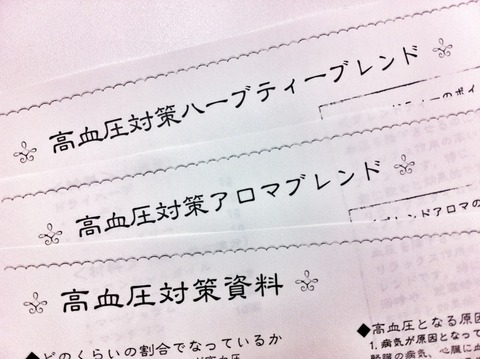 高血圧対策ハーブティーブレンド
高血圧対策アロマブレンド
ブレンドアロマの
高血圧対策資料
◆どのくらいの割合でなっているか
◆高血圧となる原因
1. 病気が原因となって
腎臓の病気、心臓に血